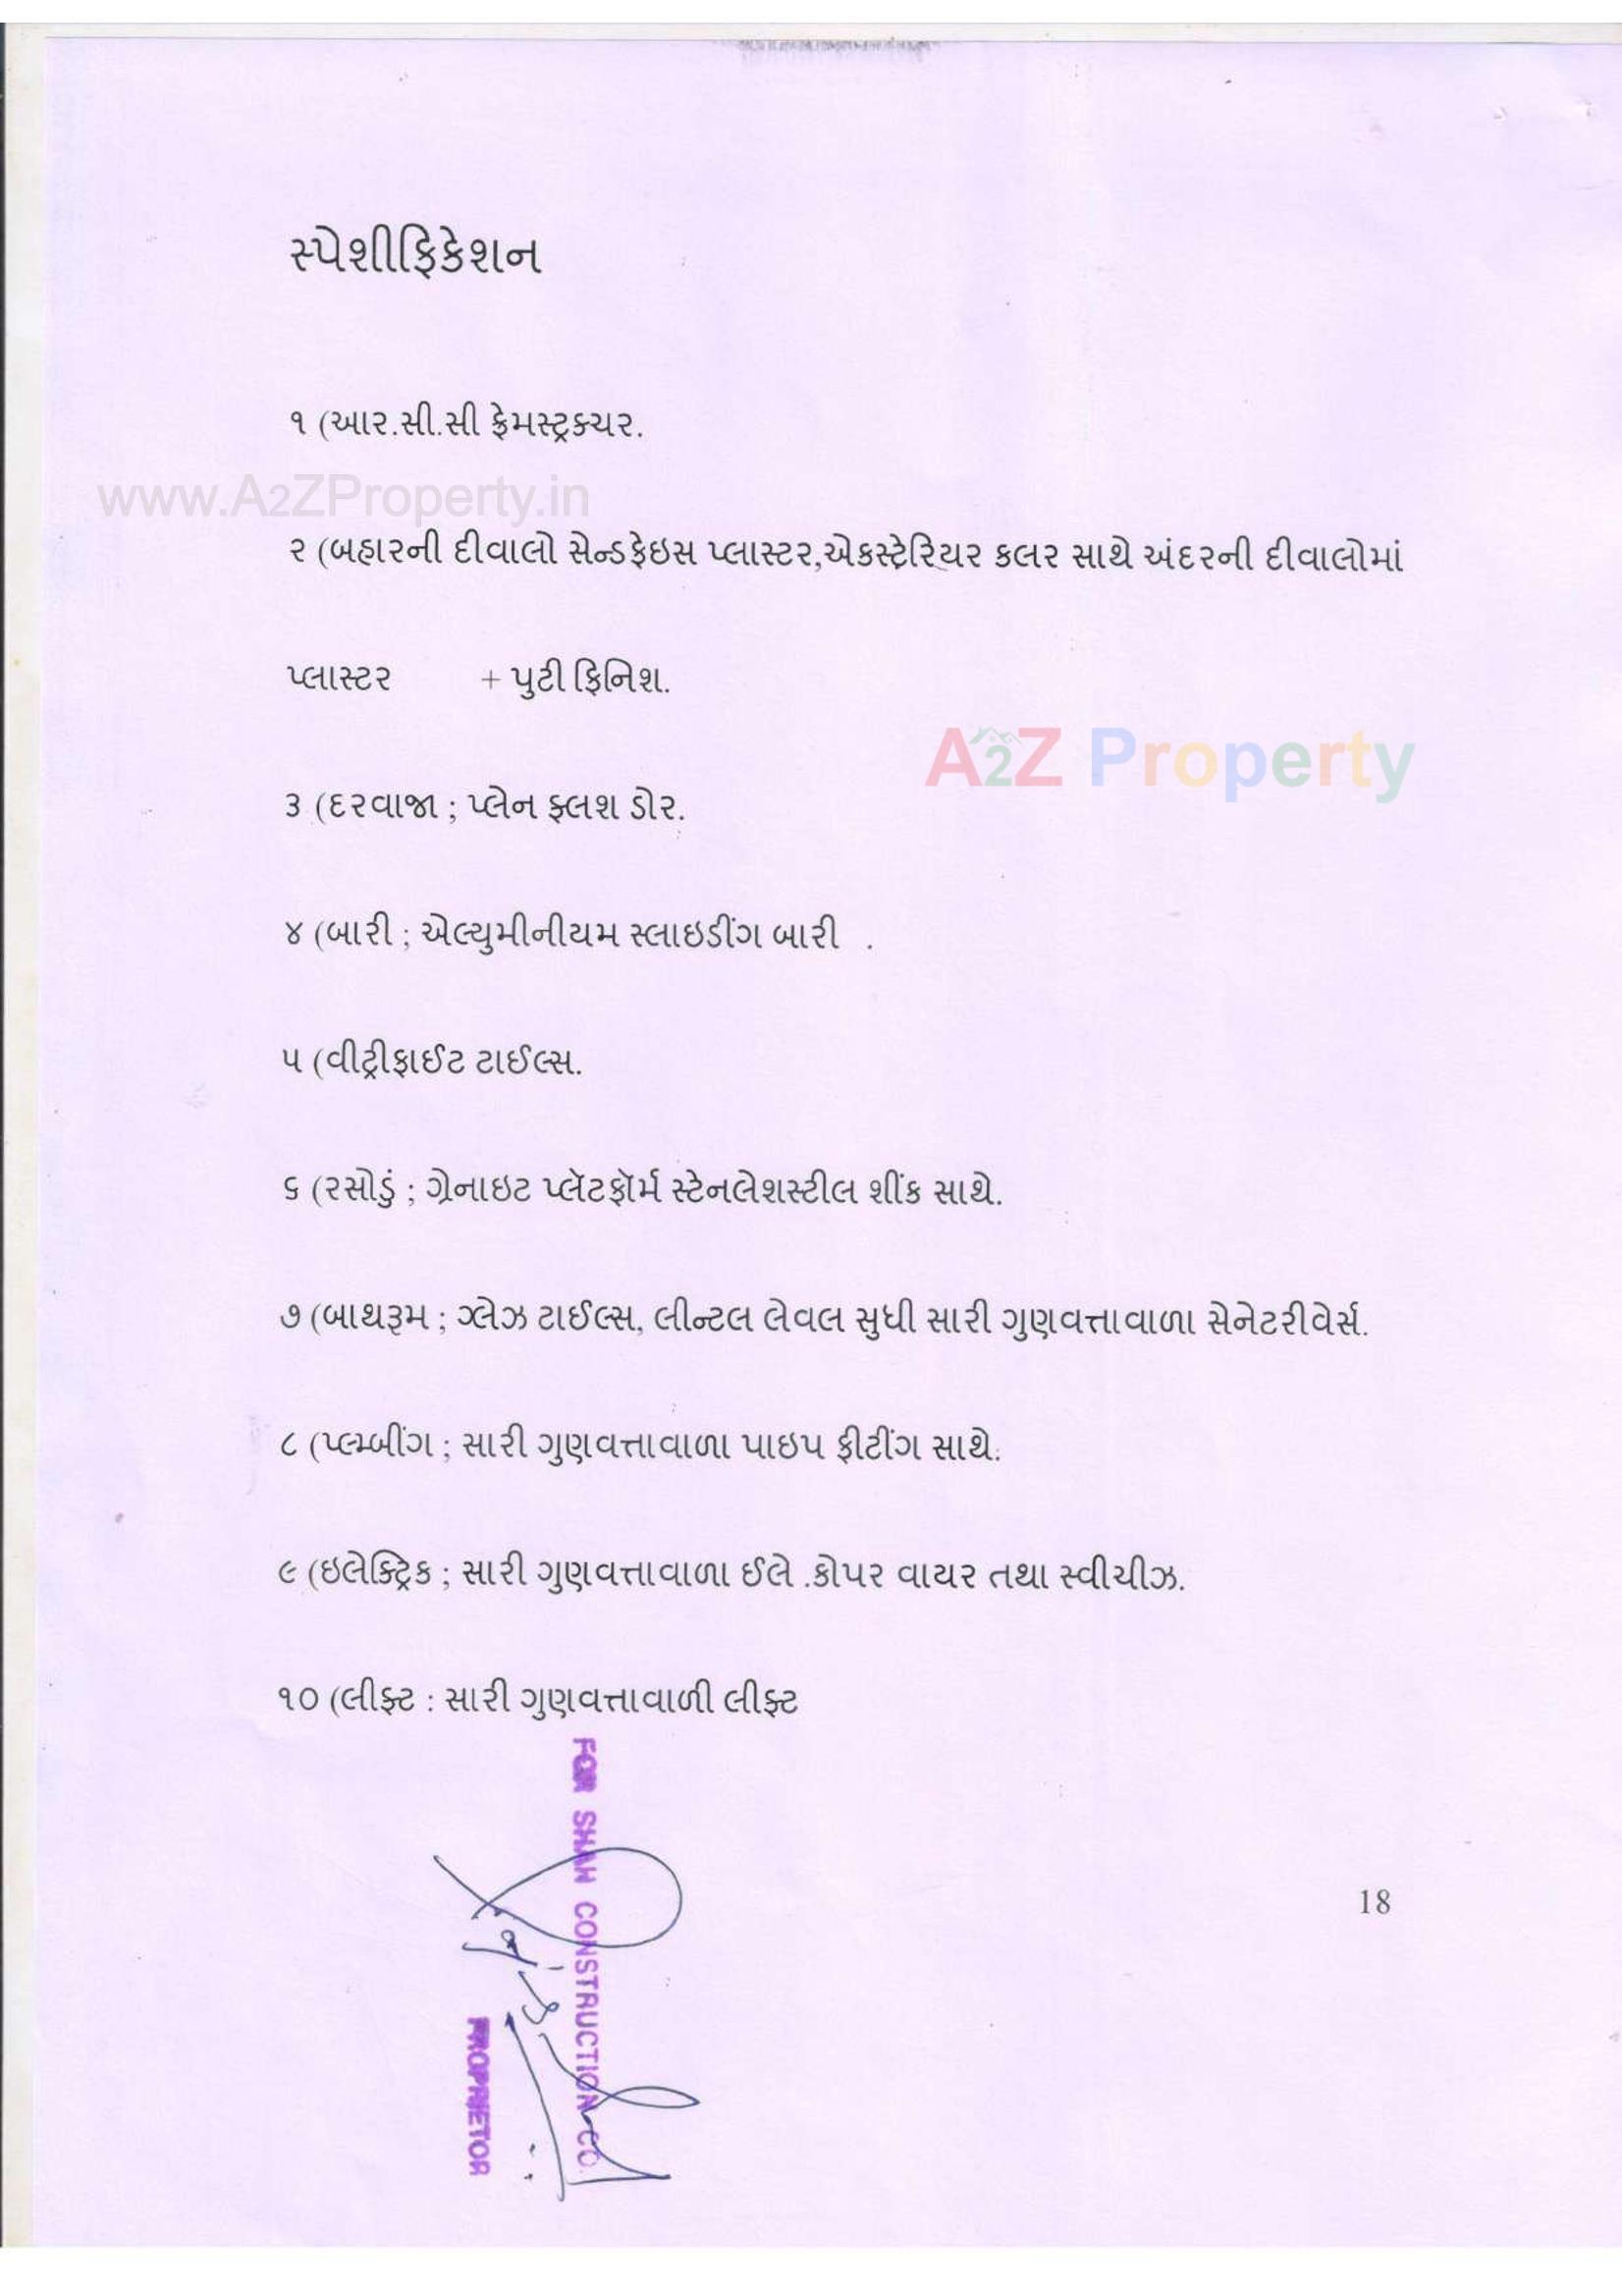 સ્પેશીફિકેશન
૧ (આર.સી.સી ફ્રેમસ્ટ્રક્ચર.
www.A2ZProperty.in
૨ (બહારની દીવાલો સેન્ડફેઇસ પ્લાસ્ટર,એકસ્ટેરિયર કલર સાથે અંદરની દીવાલોમાં
પ્લાસ્ટર + પુટી ફિનિશ.
A2Z Property
૩ (દરવાજા ; પ્લેન ફ્લશ ડોર.
૪ (બારી ; એલ્યુમીનીયમ સ્લાઇડીંગ બારી .
૫ (વીટ્રીફાઈટ ટાઈલ્સ.
૬ (રસોડું ; ગ્રેનાઇટ પ્લૅટફૉર્મ સ્ટેનલેશસ્ટીલ શીંક સાથે.
૭ (બાથરૂમ ; ગ્લેઝ ટાઈલ્સ, લીન્ટલ લેવલ સુધી સારી ગુણવત્તાવાળા સેનેટરીવેર્સ.
૮ (પ્લ્મ્બીંગ ; સારી ગુણવત્તાવાળા પાઇપ ફીટીંગ સાથે.
૯ (ઇલેક્ટ્રિક ; સારી ગુણવત્તાવાળા ઈલે .કોપર વાયર તથા સ્વીચીઝ.
૧૦ (લીફ્ટ : સારી ગુણવત્તાવાળી લીફ્ટ
FOR SHAH CONSTRUCTION CO.
PROPRIETOR
18